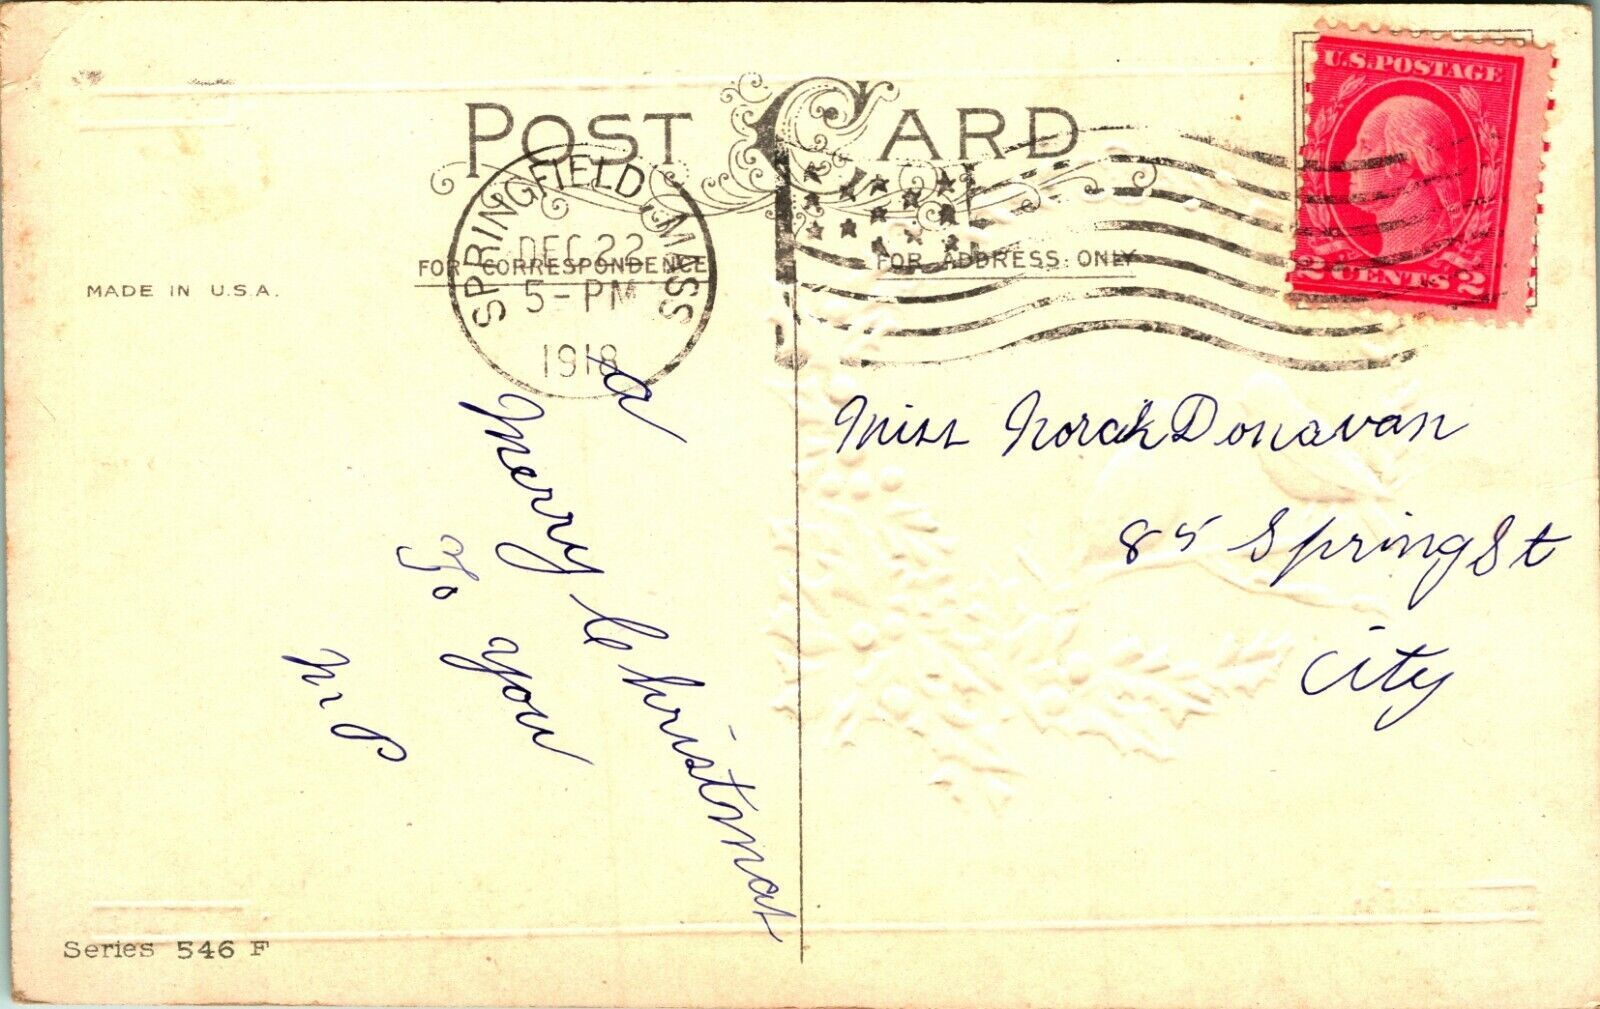 POST CARD
SPRINGFIELD, MASS
DEC 22
5-PM
1918
FOR CORRESPONDENCE
FOR ADDRESS ONLY
U.S. POSTAGE
2 CENTS 2
MADE IN U.S.A.
A
Merry Christmas
To you
M P
Miss Norah Donavan
85 Spring St
City
Series 546 F